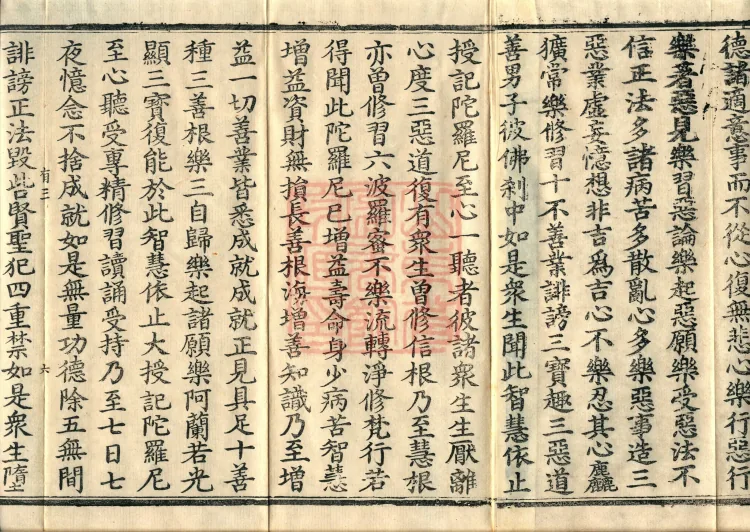 德諸適意事而不從心復無悲心樂行惡行
樂著惡見樂習惡論樂起惡願樂受惡法不
信正法多諸病苦多散亂心多樂惡事造三
惡業虛妄憶想非吉爲吉心不樂忍其心麤
獷常樂修習十不善業誹謗三寶趣三惡道
善男子彼佛剎中如是衆生聞此智慧依止
授記陀羅尼至心一聽者彼諸衆生生厭離
心度三惡道復有衆生曾修信根乃至慧根
亦曾修習六波羅蜜不樂流轉淨修梵行若
得聞此陀羅尼已增益壽命身少病苦智慧
增益資財無損長善根海增善知識乃至增
益一切善業皆悉成就成就正見具足十善
種三善根樂三自歸樂起諸願樂阿蘭若光
顯三寶復能於此智慧依止大授記陀羅尼
至心聽受專精修習讀誦受持乃至七日七
有三 六
夜憶念不捨成就如是無量功德除五無間
誹謗正法毀呰賢聖犯四重禁如是衆生墮